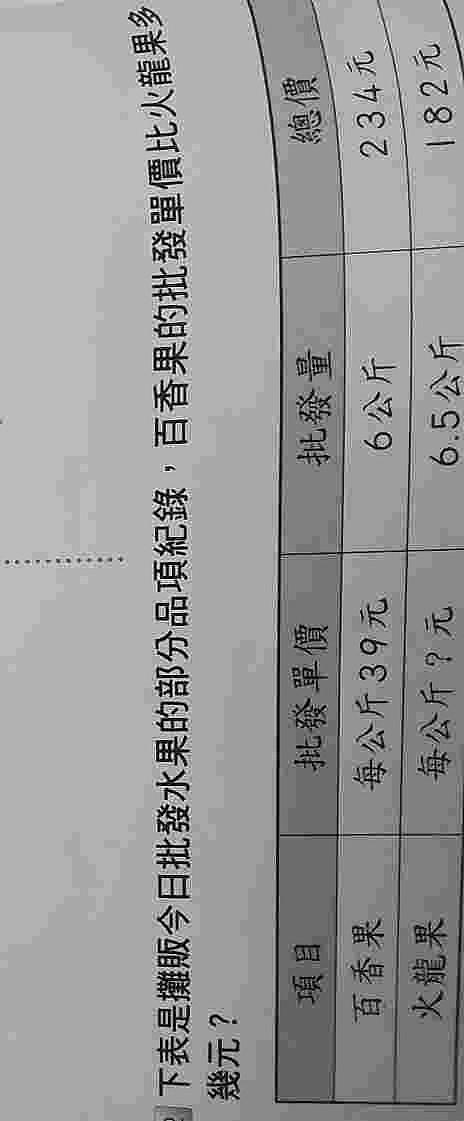 下表是攤販今日批發水果的部分品項紀錄，百香果的批發單價比火龍果多
幾元？
項目 批發單價 批發量 總價
百香果 每公斤39元 6公斤 234元
火龍果 每公斤？元 6.5公斤 182元